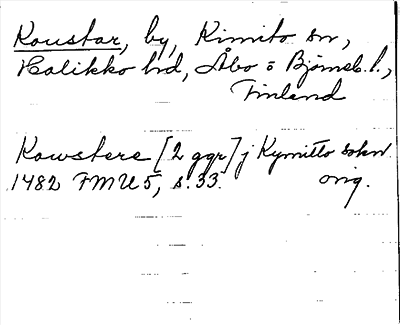 Koustar, by, Kimito sn,
Halikko hd, Åbo o Björneb. l.,
Finland
Kowstere [2 ggr] j Kymitto sokn
1482 FMU 5, s. 33. orig.